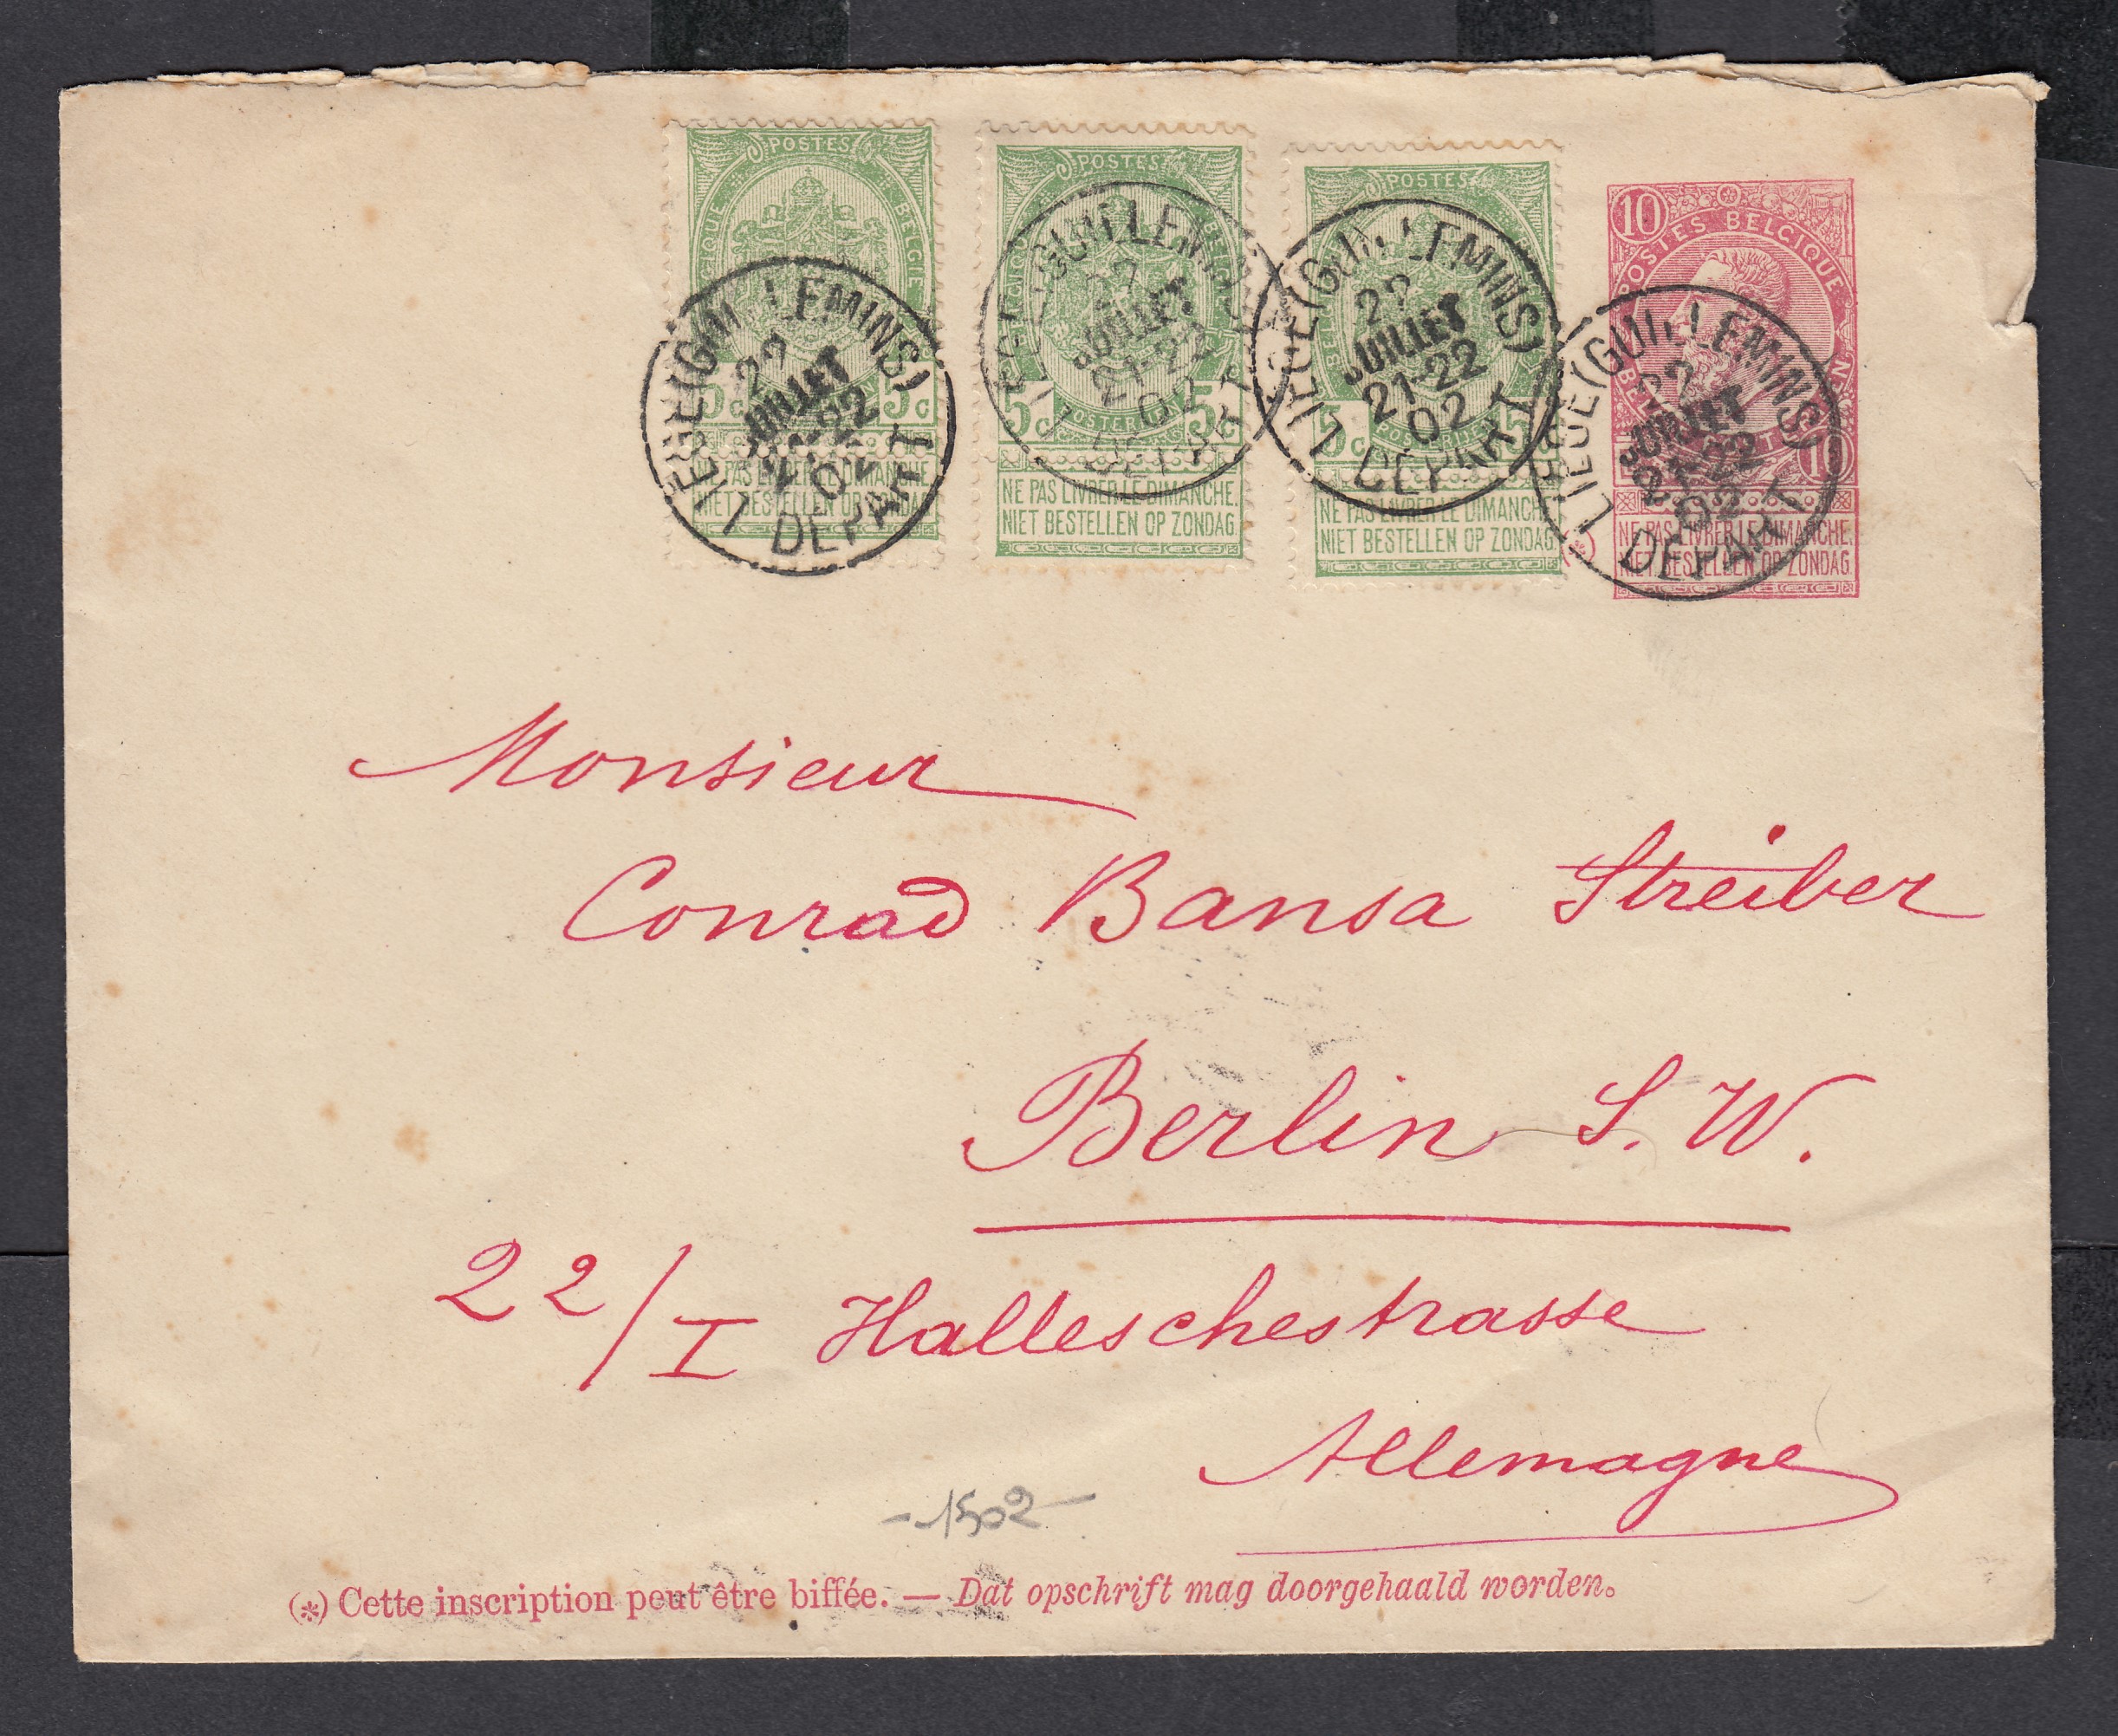 POSTES
BELGIQUE BELGIE
5c 5c
POSTERIJEN
NE PAS LIVRER LE DIMANCHE
NIET BESTELLEN OP ZONDAG
LIEGE (GUILLEMINS)
22
JUILLET
21-22
02
DEPART
POSTES
BELGIQUE BELGIE
5c 5c
POSTERIJEN
NE PAS LIVRER LE DIMANCHE
NIET BESTELLEN OP ZONDAG
LIEGE (GUILLEMINS)
22
JUILLET
21-22
02
DEPART
POSTES
BELGIQUE BELGIE
5c 5c
POSTERIJEN
NE PAS LIVRER LE DIMANCHE
NIET BESTELLEN OP ZONDAG
LIEGE (GUILLEMINS)
22
JUILLET
21-22
02
DEPART
10
POSTES BELGIQUE
10
(*) NE PAS LIVRER LE DIMANCHE.
NIET BESTELLEN OP ZONDAG
LIEGE (GUILLEMINS)
22
JUILLET
21-22
02
DEPART
Monsieur
Conrad Bansa Streiber
Berlin S. W.
22/I Halleschestrasse
Allemagne
- 1502 -
(*) Cette inscription peut être biffée. — Dat opschrift mag doorgehaald worden.